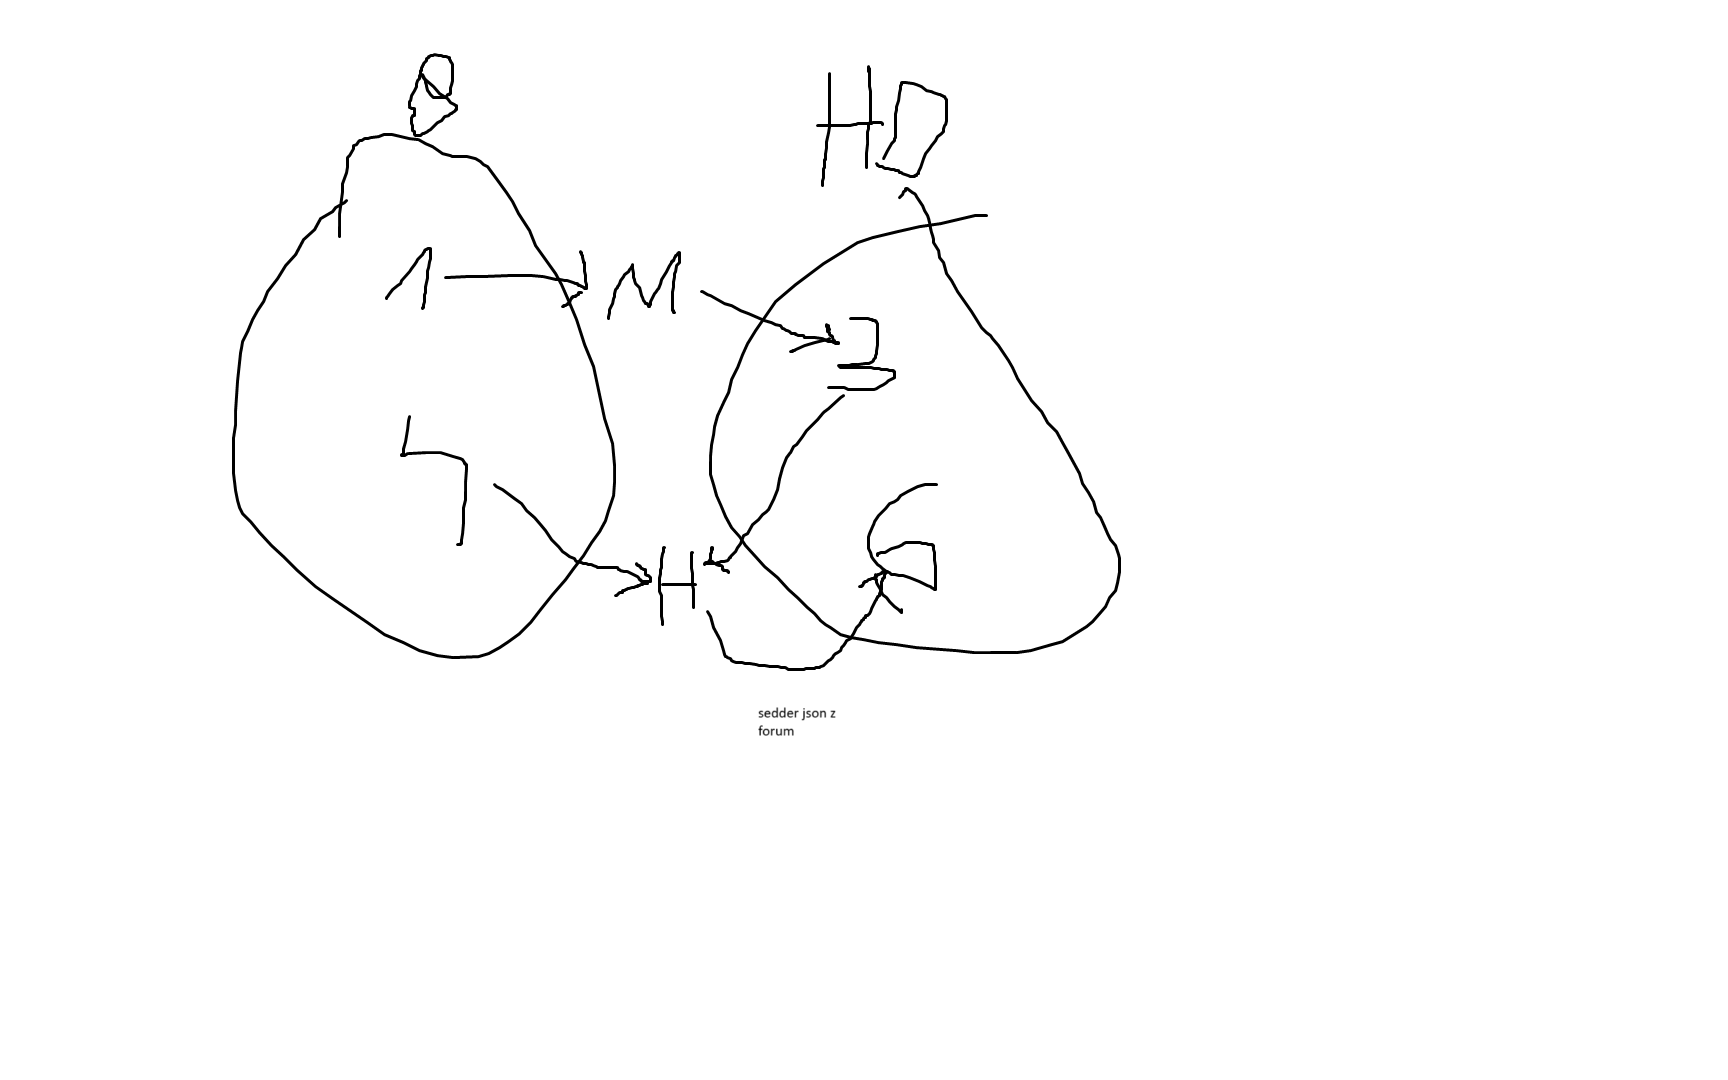 HD
1
M
3
4
H
6
sedder json z
forum